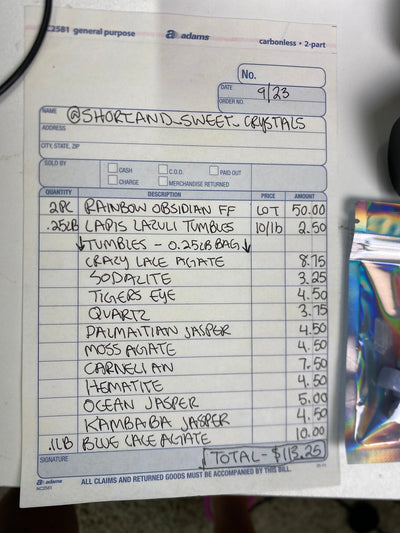 NC2581 general purpose adams carbonless • 2-part
No.
DATE 9/23
ORDER NO.
NAME @SHORT.AND_SWEET_CRYSTALS
ADDRESS
CITY, STATE, ZIP
SOLD BY CASH C.O.D. PAID OUT
CHARGE MERCHANDISE RETURNED
QUANTITY DESCRIPTION PRICE AMOUNT
2PC RAINBOW OBSIDIAN FF LOT 50.00
.25LB LAPIS LAZULI TUMBLES 10/lb 2.50
↓TUMBLES - 0.25LB BAG↓
CRAZY LACE AGATE 8.75
SODALITE 3.25
TIGERS EYE 4.50
QUARTZ 3.75
DALMAITIAN JASPER 4.50
MOSS AGATE 4.50
CARNELIAN 7.50
HEMATITE 4.50
OCEAN JASPER 5.00
KAMBABA JASPER 4.50
.1LB BLUE LACE AGIATE 10.00
SIGNATURE TOTAL - $113.25
adams
NC2581
ALL CLAIMS AND RETURNED GOODS MUST BE ACCOMPANIED BY THIS BILL.